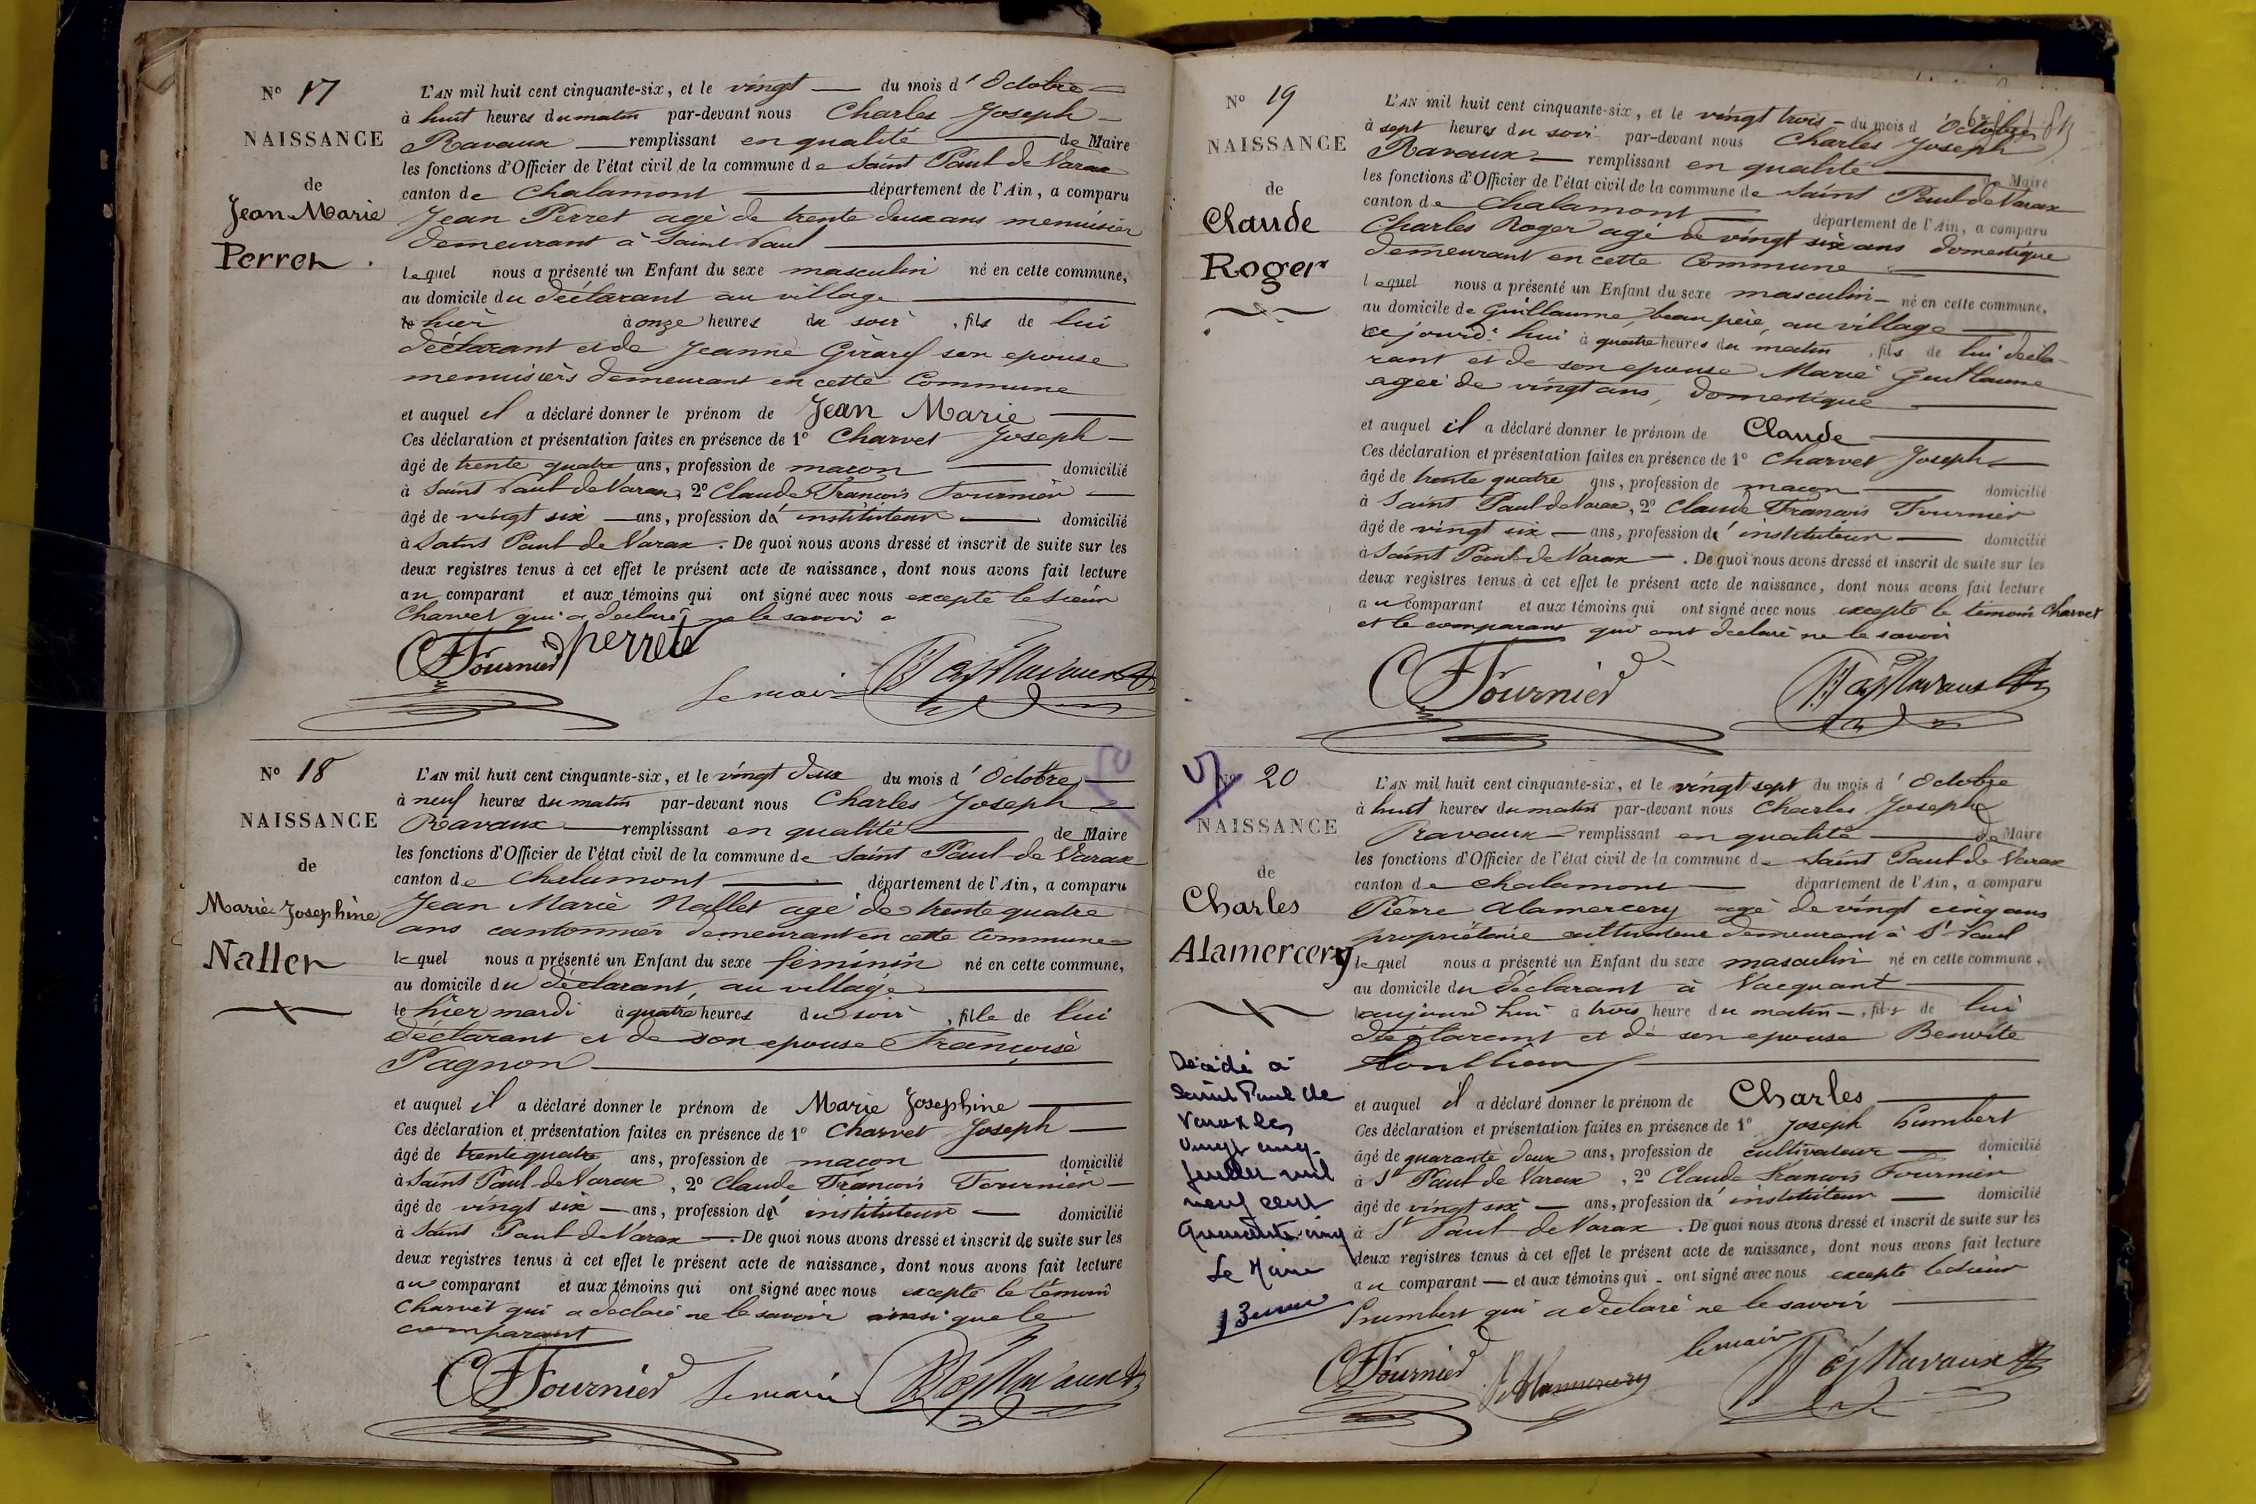 N° 17
NAISSANCE
de
Jean Marie
Perret
L'AN mil huit cent cinquante-six, et le vingt — du mois d' Octobre —
à huit heures du matin par-devant nous Charles Joseph —
Ravaux — remplissant en qualité — de Maire
les fonctions d'Officier de l'état civil de la commune de Saint Paul de Varax
canton de Chalamont — département de l'Ain, a comparu
Jean Perret agé de trente deux ans menuisier
demeurant à Saint Paul —
lequel nous a présenté un Enfant du sexe masculin né en cette commune,
au domicile du déclarant au village —
hier à onze heures du soir, fils de lui
déclarant et de Jeanne Girard son epouse
menuisiers demeurant en cette Commune
et auquel il a déclaré donner le prénom de Jean Marie —
Ces déclaration et présentation faites en présence de 1° Charvet Joseph —
âgé de trente quatre ans, profession de macon — domicilié
à Saint Paul de Varax, 2° Claude Francois Fournier —
âgé de vingt six — ans, profession d' instituteur — domicilié
à Saint Paul de Varax. De quoi nous avons dressé et inscrit de suite sur les
deux registres tenus à cet effet le présent acte de naissance, dont nous avons fait lecture
au comparant et aux témoins qui ont signé avec nous excepté le sieur
Charvet qui a déclaré ne le savoir
CFFournier perret
Le maire Ravaux
N° 18
NAISSANCE
de
Marie Josephine
Nallet
L'AN mil huit cent cinquante-six, et le vingt deux du mois d' Octobre —
à neuf heures du matin par-devant nous Charles Joseph —
Ravaux — remplissant en qualité — de Maire
les fonctions d'Officier de l'état civil de la commune de Saint Paul de Varax
canton de Chalamont — département de l'Ain, a comparu
Jean Marie Nallet agé de trente quatre
ans cantonnier demeurant en cette Commune
lequel nous a présenté un Enfant du sexe féminin né en cette commune,
au domicile du déclarant au village —
le hier mardi à quatre heures du soir, fille de lui
déclarant et de son epouse Francoise
Pagnon —
et auquel il a déclaré donner le prénom de Marie Josephine —
Ces déclaration et présentation faites en présence de 1° Charvet Joseph —
âgé de trente quatre ans, profession de macon — domicilié
à Saint Paul de Varax, 2° Claude Francois Fournier —
âgé de vingt six — ans, profession d' instituteur — domicilié
à Saint Paul de Varax —. De quoi nous avons dressé et inscrit de suite sur les
deux registres tenus à cet effet le présent acte de naissance, dont nous avons fait lecture
au comparant et aux témoins qui ont signé avec nous excepté le témoin
Charvet qui a déclaré ne le savoir ainsi que le
comparant
CFFournier Le maire Ravaux
N° 19
NAISSANCE
de
Claude
Roger
L'AN mil huit cent cinquante-six, et le vingt trois — du mois d' Octobre
à sept heures du soir par-devant nous Charles Joseph
Ravaux — remplissant en qualité — de Maire
les fonctions d'Officier de l'état civil de la commune de Saint Paul de Varax
canton de Chalamont — département de l'Ain, a comparu
Charles Roger agé de vingt six ans domestique
demeurant en cette Commune —
lequel nous a présenté un Enfant du sexe masculin — né en cette commune,
au domicile de Guillaume, beau père, au village —
ce jourd'hui à quatre heures du matin, fils de lui décla-
rant et de son epouse Marie Guillaume
agée de vingt ans, domestique —
et auquel il a déclaré donner le prénom de Claude —
Ces déclaration et présentation faites en présence de 1° Charvet Joseph —
âgé de trente quatre ans, profession de macon — domicilié
à Saint Paul de Varax, 2° Claude Francois Fournier
âgé de vingt six — ans, profession d' instituteur — domicilié
à Saint Paul de Varax —. De quoi nous avons dressé et inscrit de suite sur les
deux registres tenus à cet effet le présent acte de naissance, dont nous avons fait lecture
au comparant et aux témoins qui ont signé avec nous excepté le témoin Charvet
et le comparant qui ont déclaré ne le savoir
CFFournier Ravaux
N° 20
NAISSANCE
de
Charles
Alamercery
Décédé à
Saint Paul de
Varax le
vingt cinq
juillet mil
neuf cent
quarante-cinq
Le Maire
L'AN mil huit cent cinquante-six, et le vingt sept du mois d' Octobre
à huit heures du matin par-devant nous Charles Joseph
Ravaux — remplissant en qualité — de Maire
les fonctions d'Officier de l'état civil de la commune de Saint Paul de Varax
canton de Chalamont — département de l'Ain, a comparu
Pierre Alamercery agé de vingt cinq ans
propriétaire cultivateur demeurant à St Paul
lequel nous a présenté un Enfant du sexe masculin né en cette commune,
au domicile du déclarant à Vacquant —
aujourd'hui à trois heure du matin —, fils de lui
déclarant et de son epouse Benoite
—
et auquel il a déclaré donner le prénom de Charles —
Ces déclaration et présentation faites en présence de 1° Joseph humbert
âgé de quarante deux ans, profession de cultivateur — domicilié
à St Paul de Varax, 2° Claude Francois Fournier
âgé de vingt six — ans, profession d' instituteur — domicilié
à St Paul de Varax. De quoi nous avons dressé et inscrit de suite sur les
deux registres tenus à cet effet le présent acte de naissance, dont nous avons fait lecture
au comparant — et aux témoins qui — ont signé avec nous excepté le sieur
humbert qui a déclaré ne le savoir —
CFFournier Alamercery le maire Ravaux